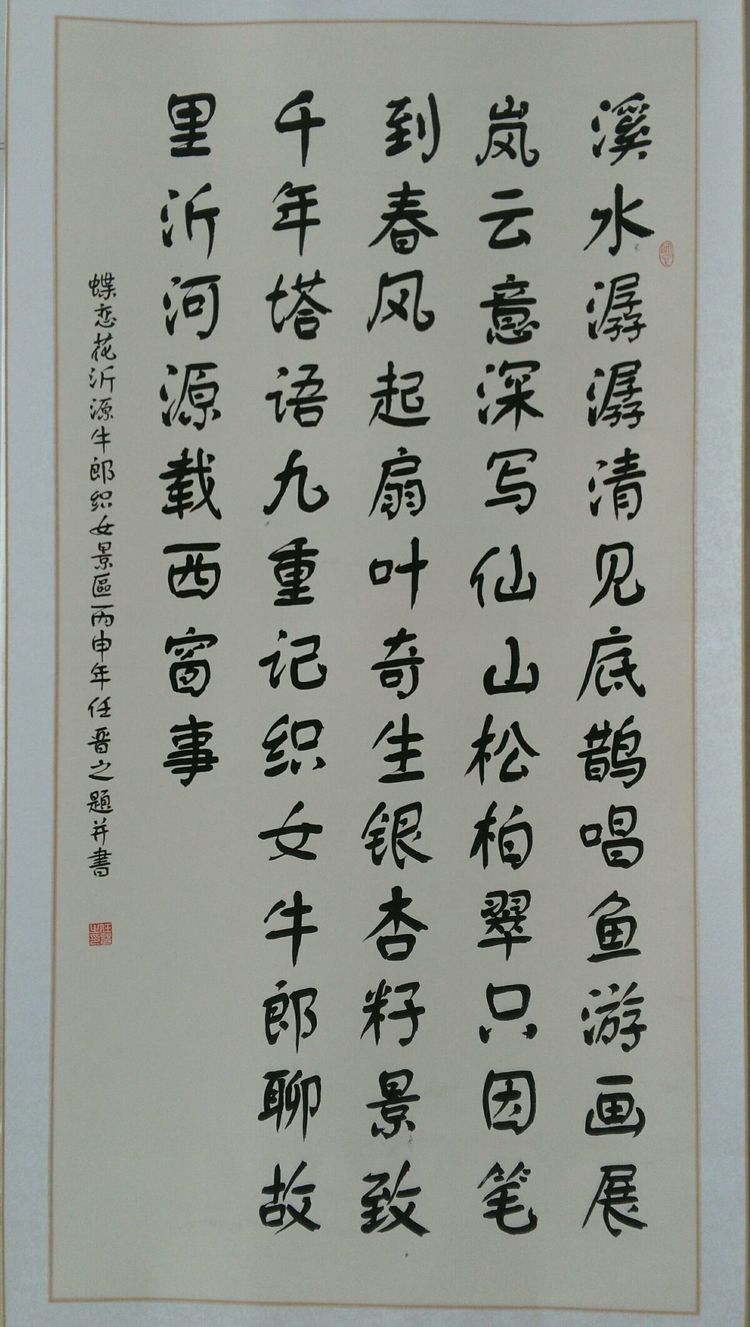 溪水潺潺清见底鹊唱鱼游画展
岚云意深写仙山松柏翠只因笔
到春风起扇叶奇生银杏籽景致
千年塔语九重记织女牛郎聊故
里沂河源载西窗事
蝶恋花沂源牛郎织女景區丙申年任晋之題并書